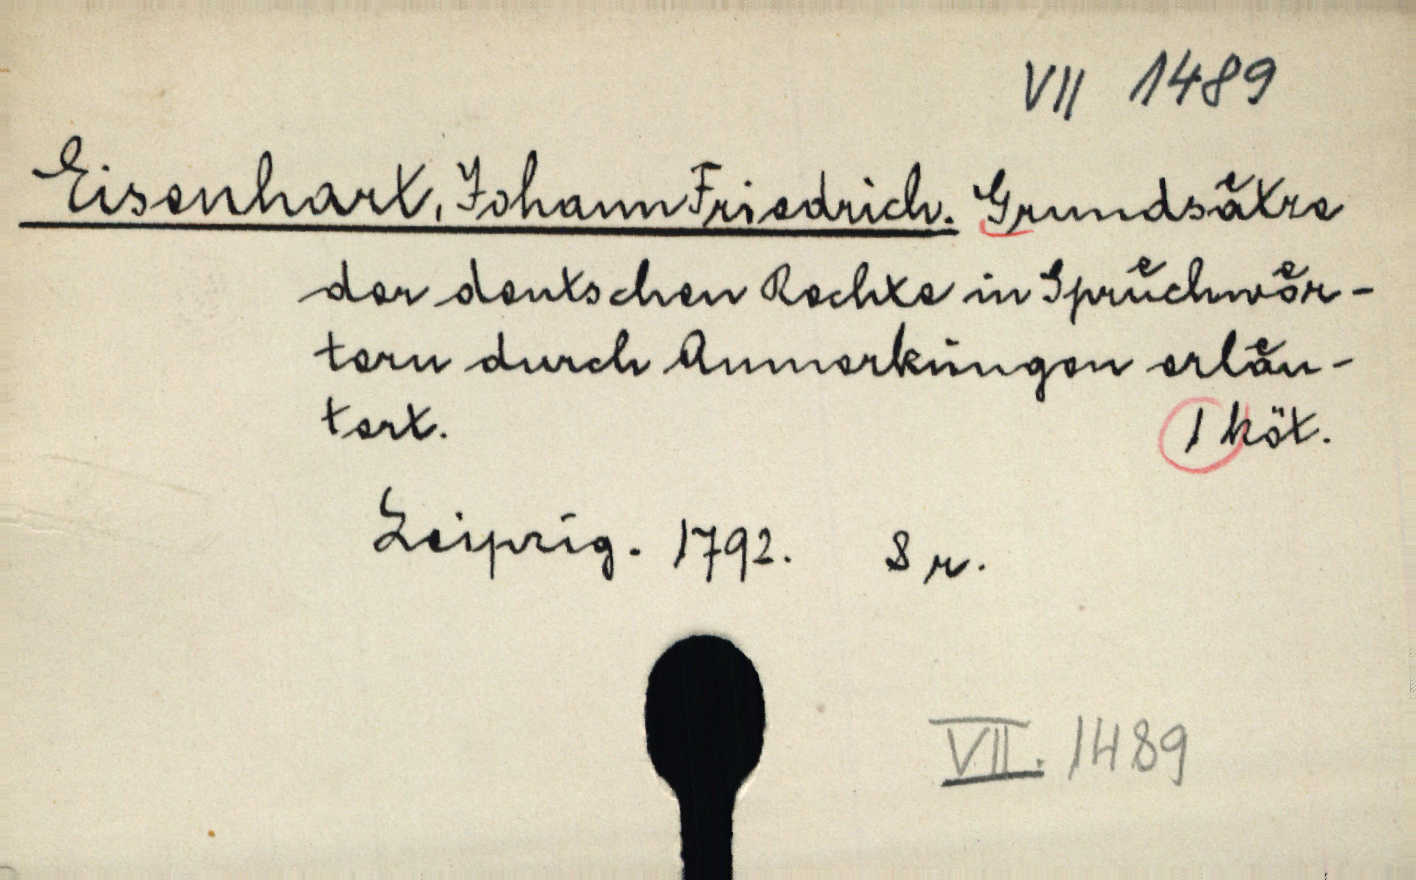 VII 1489
Eisenhart, Johann Friedrich. Grundsaͤtze
der deutschen Rechte in Spruͤchwoͤr-
tern durch Anmerkungen erlaͤu-
tert. 1 köt.
Leipzig. 1792. 8 r.
VII. 1489